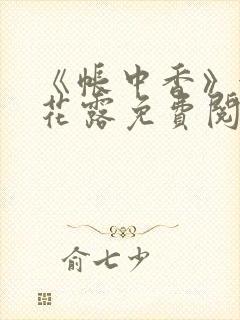 《帐中香》
花露免费阅
俞七少